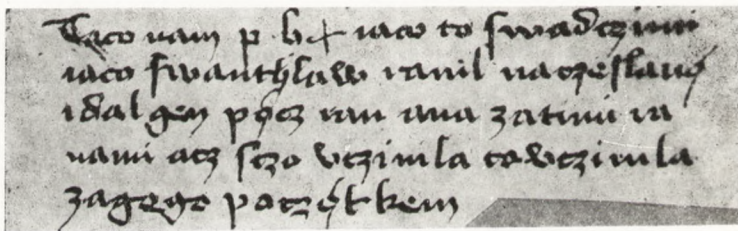 Taco nam p b ✝ iaco to swadczimi
iaco swanthslaw ranil naczeslaua
idal gen pøcz ran ana zatimi ra
nami acz sczo vczinila tovczinila
zagego poczøtkem